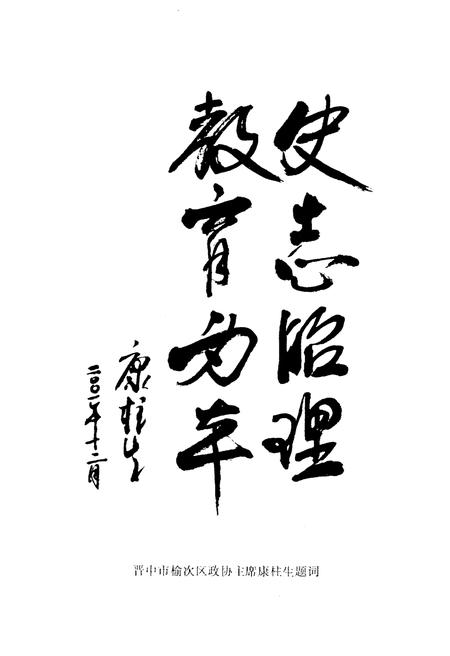 史志昭理
教育为本
康柱生
二〇〇一年十二月
晋中市榆次区政协主席康柱生题词